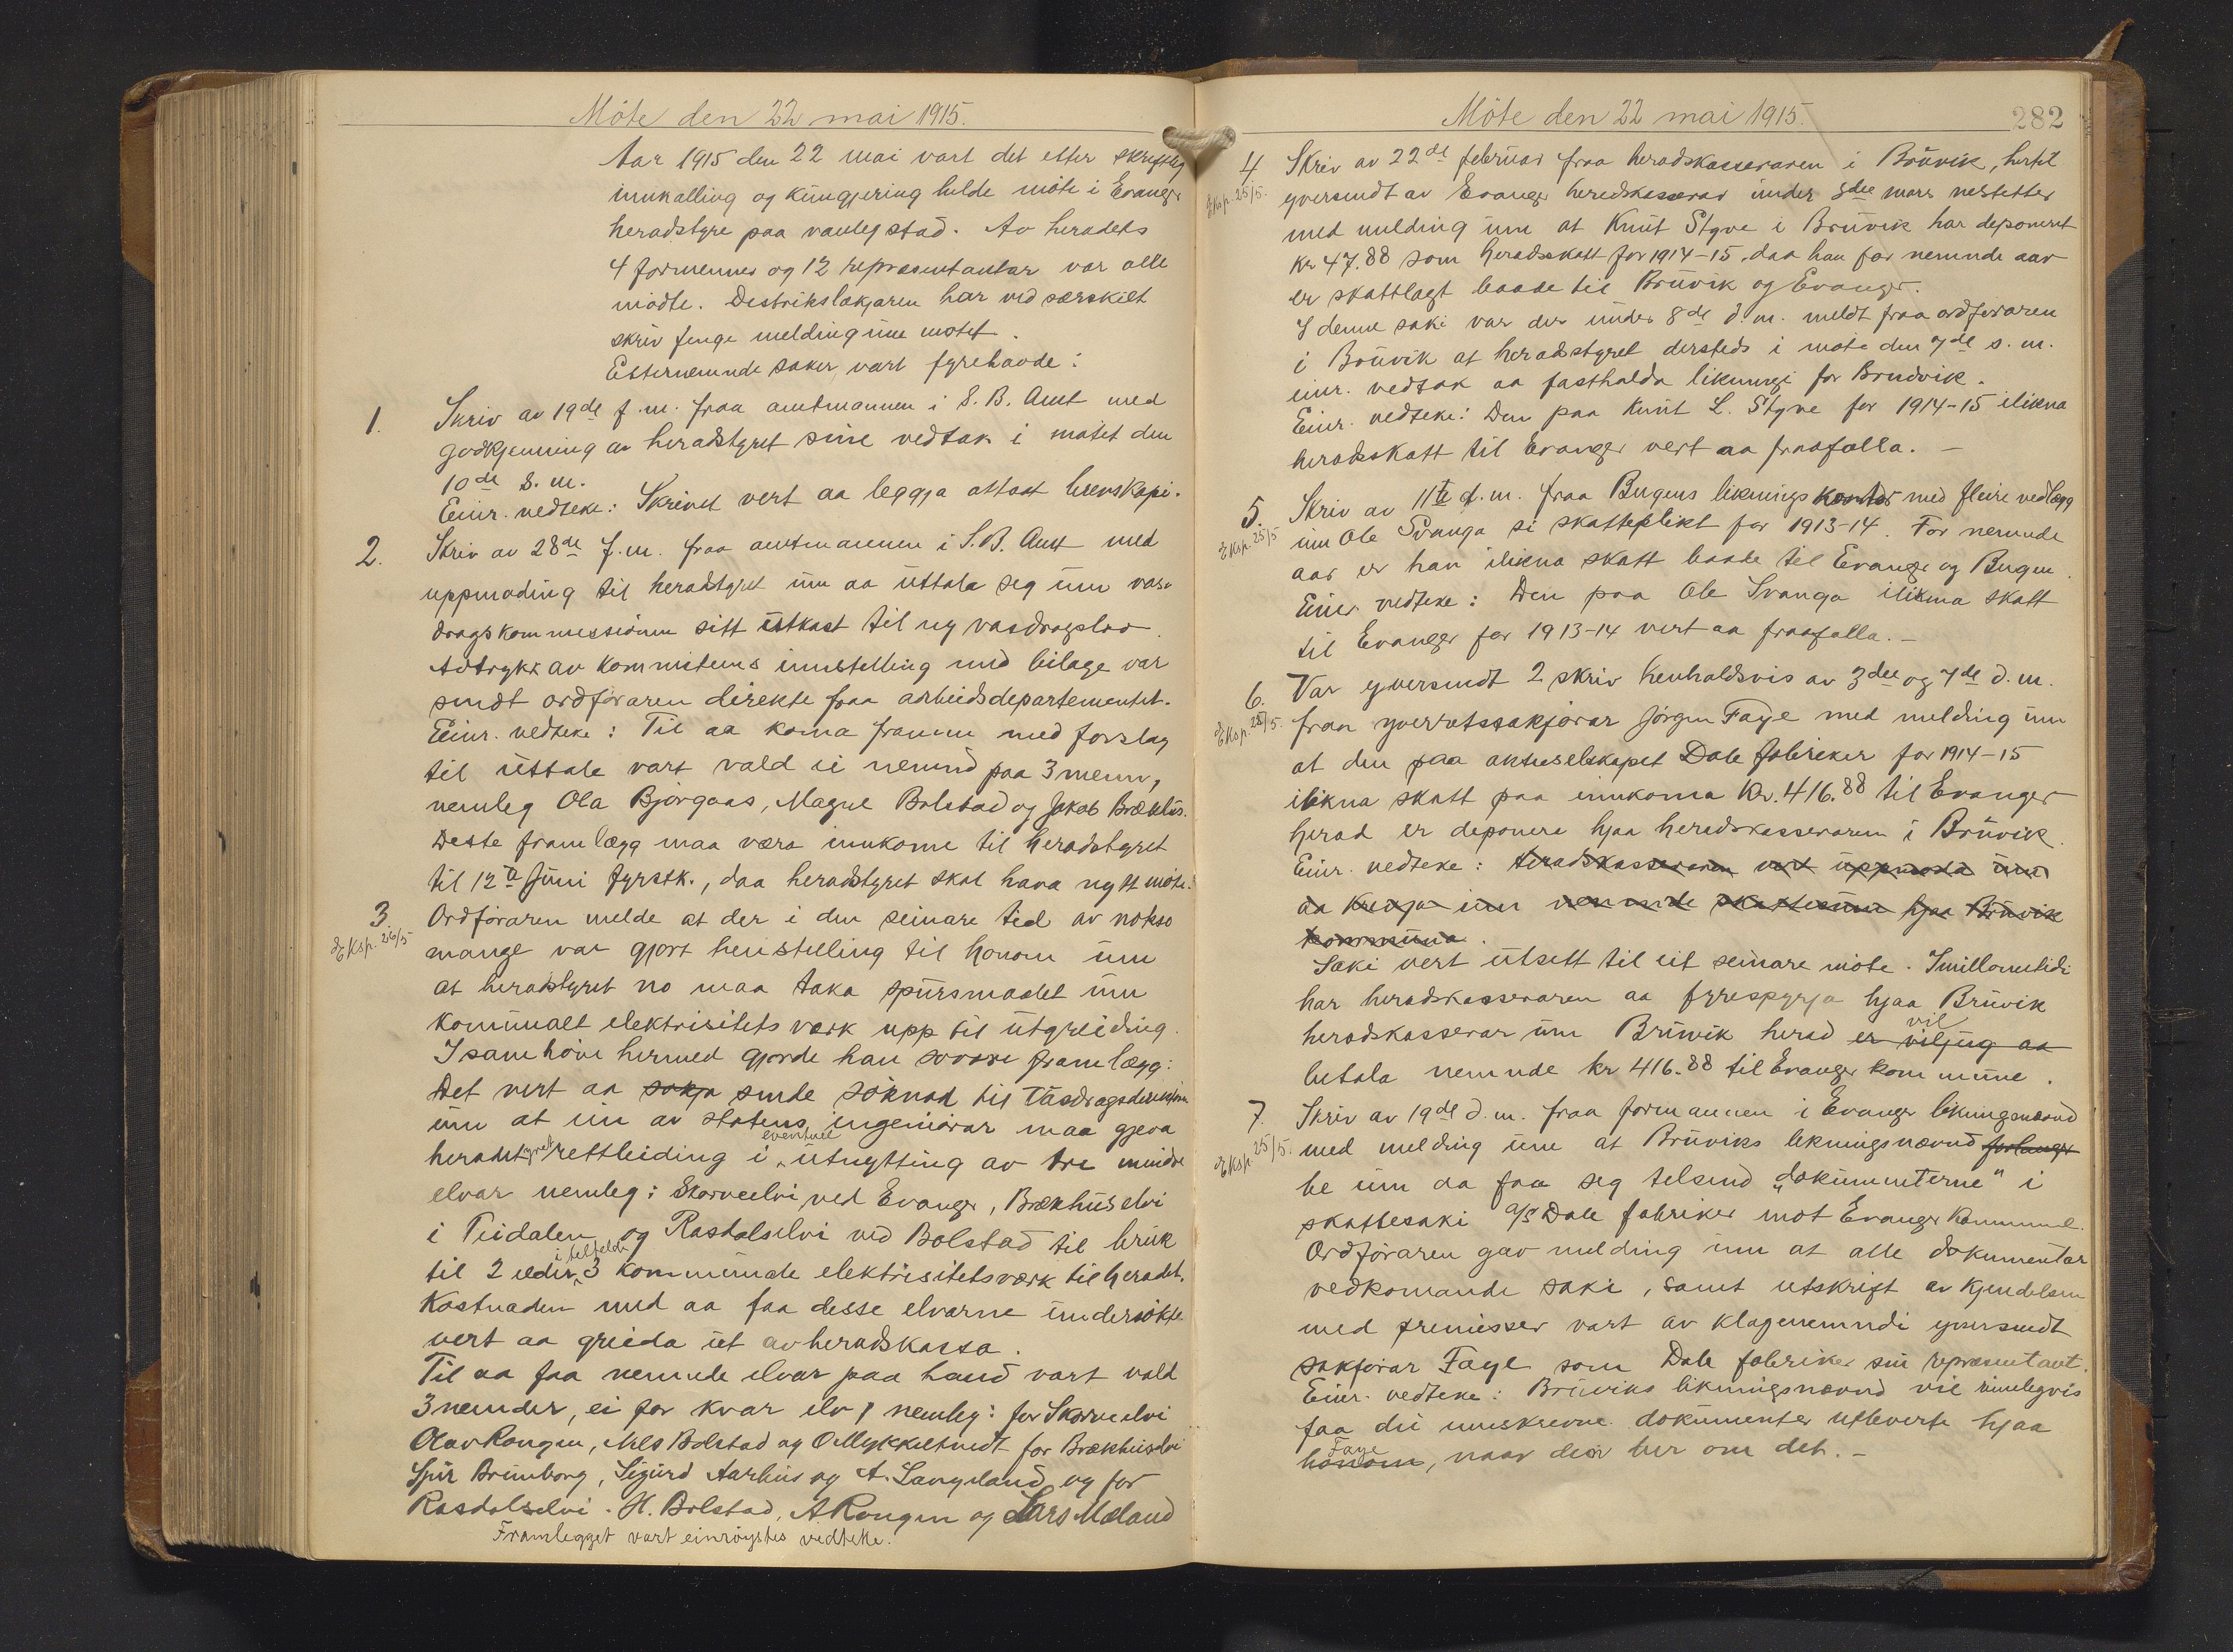 Möte den 22 mai 1915.
Aar 1915 den 22 mai vart det etter skriftleg
innkalling og kungjering helde möte i Evanger
heradstyre paa vanleg stad. Av heradets
4 formenner og 12 repræsentantar var alle
mödte. Destriktslækjaren har ved særskilt
skriv fenge melding um mötet.
Etternemnde saker vart fyrehavde:
1. Skriv av 19de f.m. fraa amtmannen i S. B. Amt med
godkjenning av heradstyret sine vedtak i mötet den
10de s.m.
Einr. vedteke: Skrivet vert aa leggja attaat brevskapi.
2. Skriv av 28de f.m. fraa amtmannen i S.B. Amt med
uppmoding til heradstyret um aa uttala seg um vas-
dragskommissionen sitt utkast til ny vasdragslov.
Avtrykk av kommisteens innstelling med bilage var
sendt ordföraren direkte fraa arbeidsdepartementet.
Einr. vedteke: Til aa koma framm med forslag
til uttale vart vald ei nemnd paa 3 menn,
nemleg Ola Björgaas, Magne Bolstad og Jakob Brækhus.
Deste framlægg maa væra innkome til heradstyret
til 12te Juni fyrstk., daa heradstyret skal hava nytt möte.
3. Ordföraren melde at der i den seinare tid av nokso
Eksp. 26/5
mange var gjort henstelling til honom um
at heradstyret no maa taka spursmaalet um
kommunalt elektrisitetsværk upp til utgreiding.
I samhöve hermed gjorde han sovore framlægg:
Det vert aa sökja sende söknad til Vasdragsdireksjonen
um at ein av statens ingeniörar maa gjeva
heradstyret rettleiding i eventuel utnytting av tre mindre
elvar nemleg: Skorveelvi ved Evanger, Brækhuselvi
i Teidalen og Rasdalselvi ved Bolstad til bruk
til 2 elder i tilfelde 3 kommunale elektrisitetsværk til heradet.
Kostnaden med aa faa desse elvarne undersökte
vert aa greida ut av heradskassa.
Til aa faa nemnde elvar paa hand vart vald
3 nemder, ei for kvar elv, nemleg: for Skorveelvi
Olav Rongen, Nils Bolstad og O. Mykkeltvedt for Brækhuselvi
Sjur Brunborg, Sigurd Aarhus og A. Langeland og for
Rasdalselvi. H. Bolstad, A Rongen og Lars Mæland
Framlegget vart einröystes vedteke.
Möte den 22 mai 1915.
282
4. Skriv av 22de februar fraa heradskasseraren i Bruvik, hertil
Eksp. 25/5.
yversendt av Evanger heredskasserar under 3dee mars nestetter
med melding um at Knut Styve i Bruvik har deponeret
Kr 47.88 som heradsskatt for 1914-15, daa han for nemnde aar
er skattlagt baade til Bruvik og Evanger.
I denne saki var der under 8de d.m. meldt fraa ordföraren
i Bruvik at heradstyret dersteds i möte den 7de s.m.
einr. vedtok aa fasthalda likningi for Brudvik.
Einr. vedteke: Den paa Knut L. Styve for 1914-15 ilikna
heradsskatt til Evanger vert aa fraafalla. -
5. Skriv av 11te d.m. fraa Bergens liknings kontor med fleire vedlegg
Eksp. 25/5
um Ole Svanga si skatteplikt for 1913-14. For nemnde
aar er han ilikna skatt baade til Evanger og Bergen.
Einr. vedteke: Den paa Ole Svanga ilikna skatt
til Evanger for 1913-14 vert aa fraafalla. -
6. Var yversendt 2 skriv henholdsvis av 3dee og 7de d.m.
Eksp. 25/5.
fraa yverretssakförar Jörgen Faye med melding um
at den paa aktieselskapet Dale fabriker for 1914-15
ilikna skatt paa innkoma Kr. 416.88 til Evanger
herad er deponere hjaa heradskasseraren i Bruvik.
Einr. vedteke: Heradskasseraren vert uppmoda um
aa krevja inn nemnde skattesum hjaa Bruvik
kommuna.
Saki vert utsett til eit seinare möte. Imillomtidi
har heradskasseraren aa fyrespyrja hjaa Bruvik
heradskasserar um Bruvik herad er viljug aa vil
betala nemnde kr 416.88 til Evanger kommune.
7. Skriv av 19de d.m. fraa formannen i Evanger likningsnævnd
Eksp. 25/5.
med melding um at Bruviks likningsnævnd forlanger
be um aa faa seg telsend "dokumenterne" i
skattesaki A/S Dale fabriker mot Evanger kommune.
Ordföraren gav melding um at alle dokumentar
vedkomande saki, samt utskrift av kjendelsen
med premisser vart av klagenemndi yversendt
sakförar Faye som Dale fabriker sin repræsentant.
Einr. vedteke: Bruviks likningsnævnd vil rimelegvis
faa dei umskrevne dokumenter utleverte hjaa
honom Faye, naar dei ber om det. -